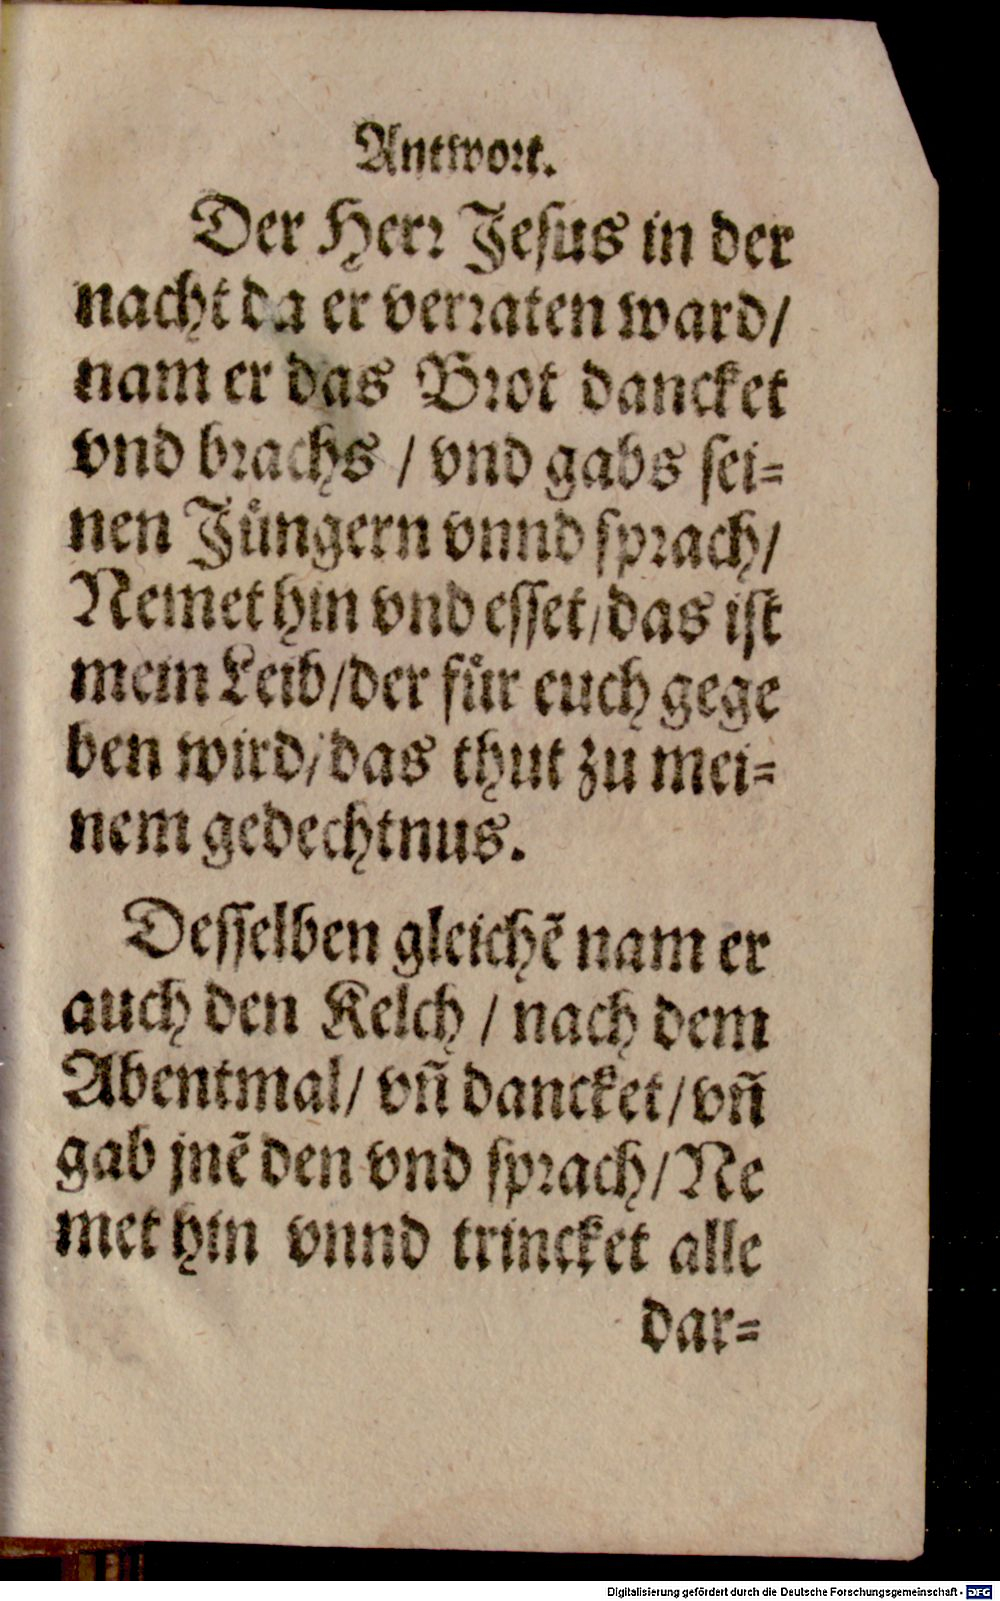 Antwort.
Der Herr Jesus in der
nacht da er verraten ward/
nam er das Brot dancket
vnd brachs / vnd gabs sei=
nen Jüngern vnnd sprach/
Nemet hin vnd esset/das ist
mein Leib/der für euch gege
ben wird/das thut zu mei=
nem gedechtnus.
Desselben gleichẽ nam er
auch den Kelch / nach dem
Abentmal/ vñ dancket/vñ
gab jnẽ den vnd sprach/Ne
met hin vnnd trincket alle
dar=
Digitalisierung gefördert durch die Deutsche Forschungsgemeinschaft - DFG